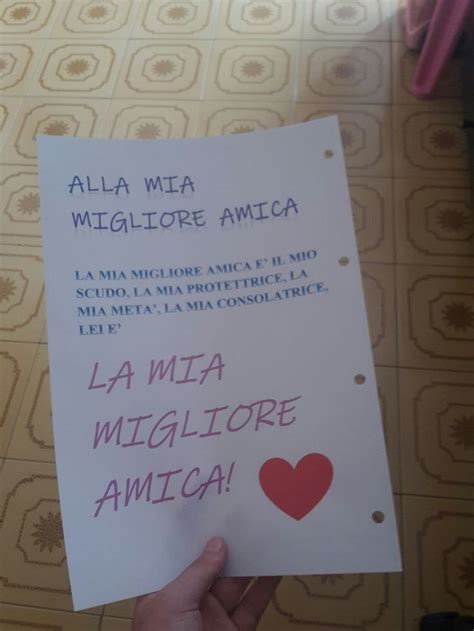 ALLA MIA
MIGLIORE AMICA
LA MIA MIGLIORE AMICA E' IL MIO
SCUDO, LA MIA PROTETTRICE, LA
MIA META', LA MIA CONSOLATRICE,
LEI E'
LA MIA
MIGLIORE
AMICA!